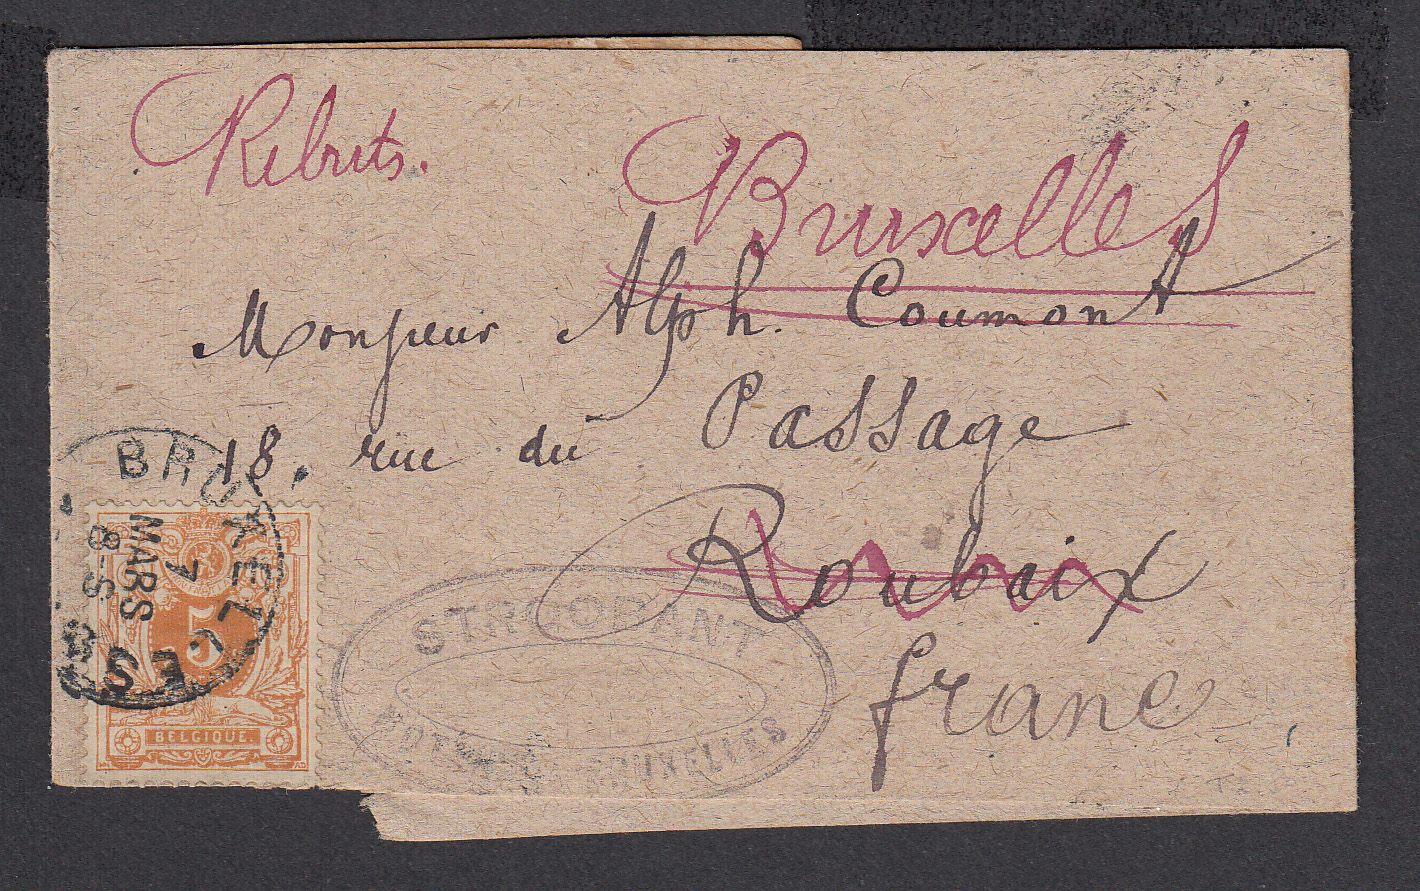 Rebuts.
Bruxelles
Monsieur Alph. Coumont
18. rue du Passage
Roubaix
franc
BRUXELLES
7 MARS
8-S
5
BELGIQUE.
STROOBANT
BRUXELLES